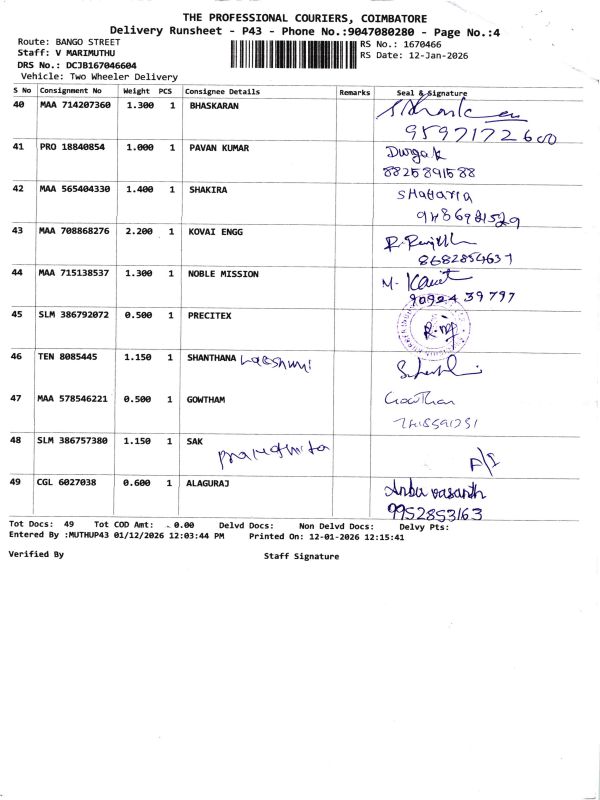 THE PROFESSIONAL COURIERS, COIMBATORE
Delivery Runsheet - P43 - Phone No.:9047080280 - Page No.:4
Route: BANGO STREET
Staff: V MARIMUTHU
DRS No.: DCJB167046604
Vehicle: Two Wheeler Delivery
RS No.: 1670466
RS Date: 12-Jan-2026
S No Consignment No Weight PCS Consignee Details Remarks Seal & Signature
40 MAA 714207360 1.300 1 BHASKARAN
9597172600
41 PRO 18840854 1.000 1 PAVAN KUMAR Durga k
8825891588
42 MAA 565404330 1.400 1 SHAKIRA
43 MAA 708868276 2.200 1 KOVAI ENGG
44 MAA 715138537 1.300 1 NOBLE MISSION M.
90924 39797
45 SLM 386792072 0.500 1 PRECITEX
46 TEN 8085445 1.150 1 SHANTHANA Lakshmi
47 MAA 578546221 0.500 1 GOWTHAM Gowtham
48 SLM 386757380 1.150 1 SAK
49 CGL 6027038 0.600 1 ALAGURAJ Anbu vasanth
9952853163
Tot Docs: 49 Tot COD Amt: 0.00 Delvd Docs: Non Delvd Docs: Delvy Pts:
Entered By :MUTHUP43 01/12/2026 12:03:44 PM Printed On: 12-01-2026 12:15:41
Verified By Staff Signature